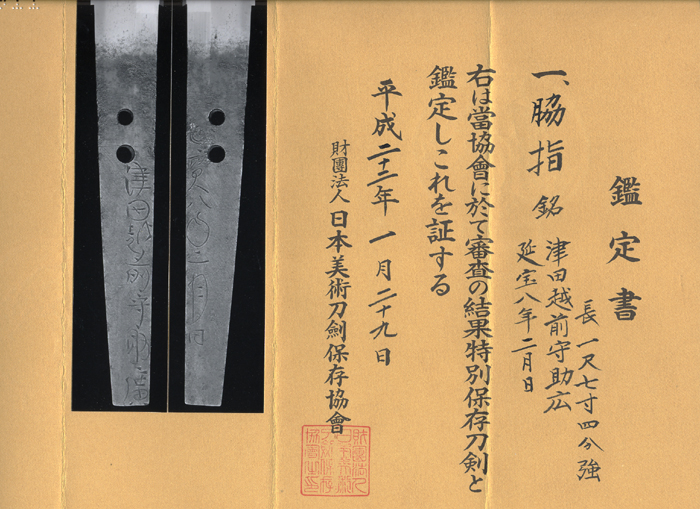 鑑定書
一、脇指 銘 津田越前守助広
延宝八年二月日
長一尺七寸四分強
右は當協會に於て審査の結果特別保存刀剣と
鑑定しこれを証する
平成二十二年一月二十九日
財團法人 日本美術刀劍保存協會
津田越前守助廣
延寶八年二月日